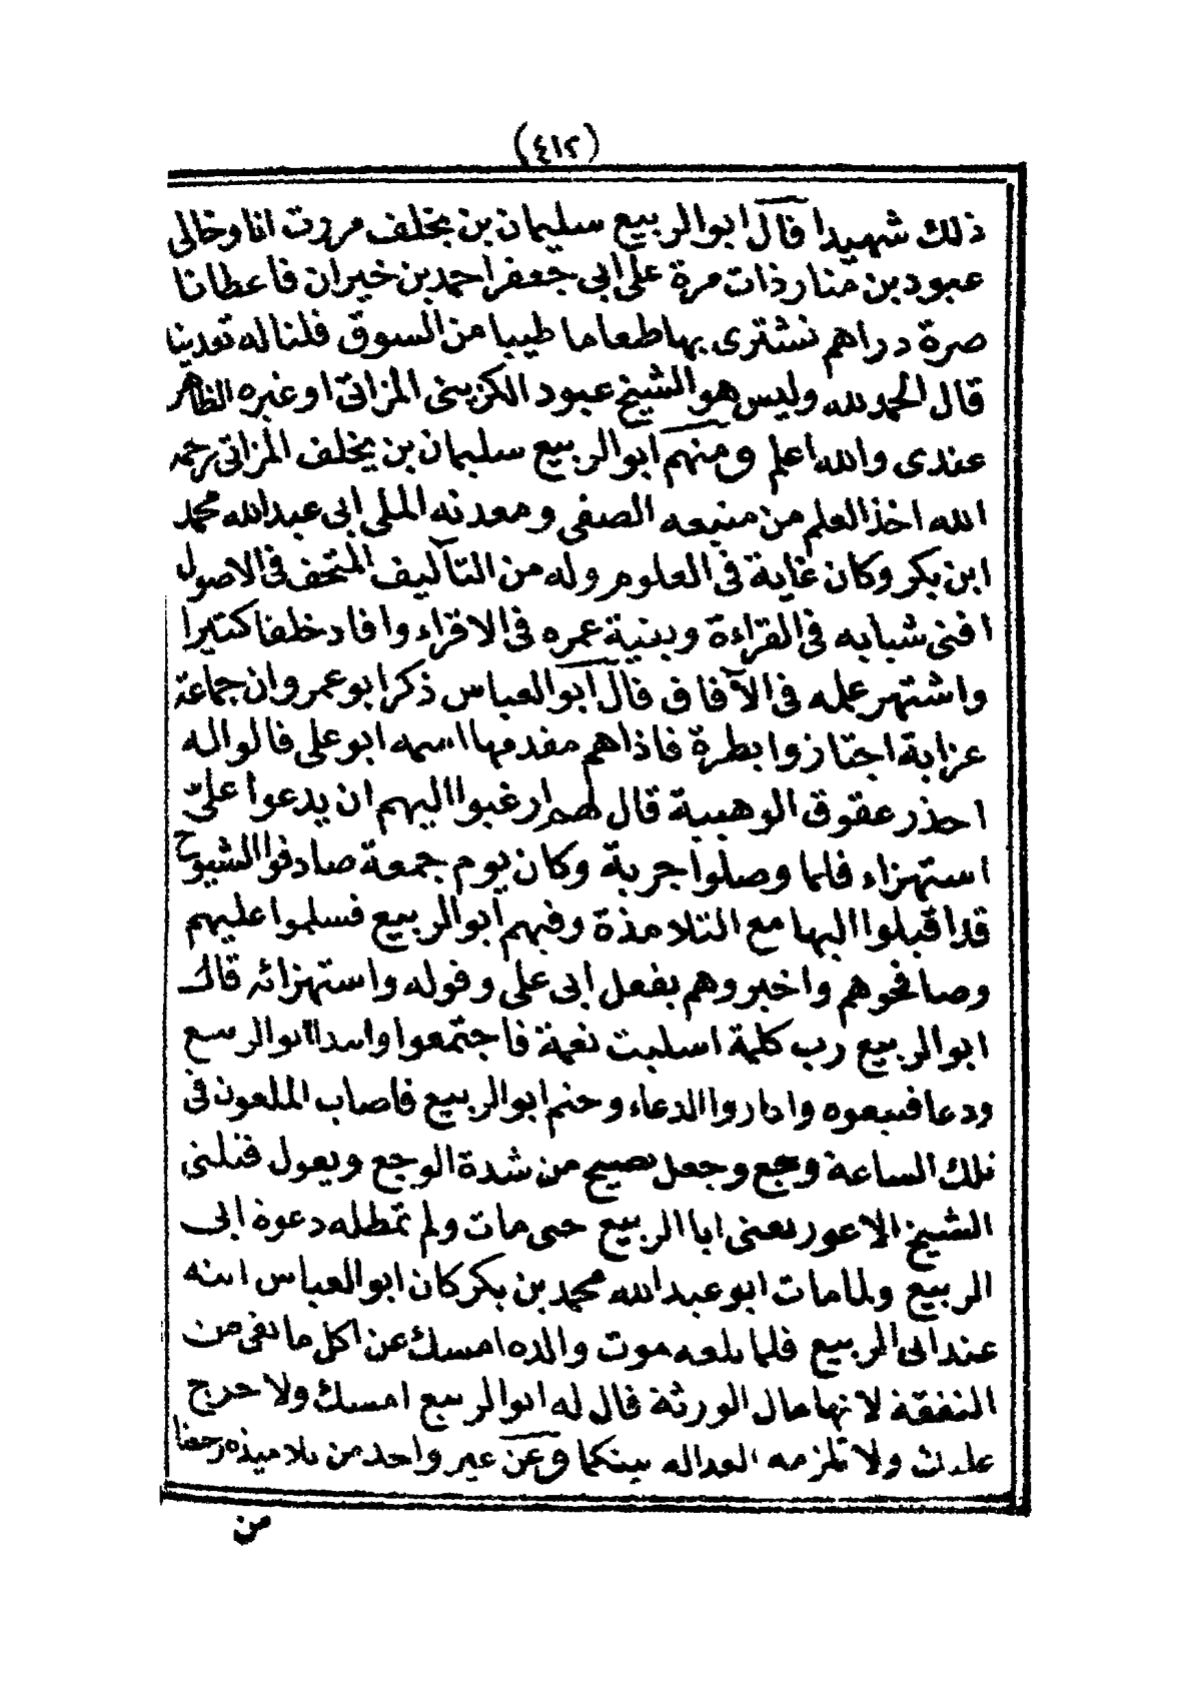 (٤١٢)
ذلك شهيدا قال ابوالربيع سليمان بن يخلف مررت انا وخالى
عبود بن منار ذات مرة على ابى جعفر احمد بن خيران فاعطانا
صرة دراهم نشترى بها طعاما طيبا من السوق فلنا له تعدينا
قال الحمد لله وليس هو الشيخ عبود الكزينى المزاتى او غيره الظاهر
عندى والله اعلم ومنهم ابوالربيع سليمان بن يخلف المزاتى رحمه
الله اخذ العلم من منبعه الصفى ومعدنه الملى ابى عبد الله محمد
ابن بكر وكان غاية فى العلوم وله من التآليف المتحف فى الاصول
افنى شبابه فى القراءة وبنية عمره فى الاقراء وافاد خلفا كثيرا
واشتهر علمه فى الآفاق قال ابوالعباس ذكر ابو عمرو ان جماعة
عزابة اجتازوا بطرة فاذاهم مقدمها اسمه ابو على فالوا له
احذر عقوق الوهبية قال لهم ارغبوا اليهم ان يدعوا علىّ
استهزاء فلما وصلوا جربة وكان يوم جمعة صادفوا الشيوخ
قد اقبلوا اليها مع التلامذة وفيهم ابوالربيع فسلموا عليهم
وصافحوهم واخبروهم بفعل ابى على وقوله واستهزائه قال
ابوالربيع رب كلمة اسلبت نعمة فاجتمعوا وابتدا ابوالربيع
ودعا فتبعوه واداروا الدعاء وختم ابوالربيع فاصاب الملعون فى
تلك الساعة وجع وجعل يصيح من شدة الوجع ويقول قتلنى
الشيخ الاعور يعنى ابا الربيع حتى مات ولم تمطله دعوة ابى
الربيع ولما مات ابو عبد الله محمد بن بكر كان ابوالعباس ابنه
عند ابى الربيع فلما بلغه موت والده امسك عن اكل ما بقى من
النفقة لانها مال الورثة قال له ابوالربيع امسك ولا حرج
عليك ولا تلزمه العدالة بينكما وعن غير واحد من تلاميذه رجعنا
من